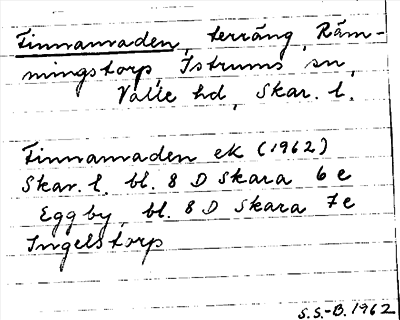 Finnamaden, terräng, Räm-
mingstorp, Istrums sn,
Valle hd, Skar. l.
Finnamaden ek (1962)
Skar. l. bl. 8 D Skara 6 e
Eggby, bl. 8 D Skara 7e
Ingelstorp
S.S.-B. 1962